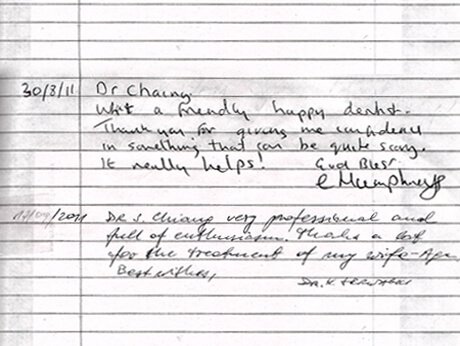 30/8/11 Dr Chaing
What a friendly happy dentist.
Thank you for giving me confidence
in something that can be quite scary.
It really helps! God Bless
/2011 Dr. S. Chiang very professional and
full of enthusiasm. Thanks a lot
for the treatment of my wife - Aga
Best wishes,